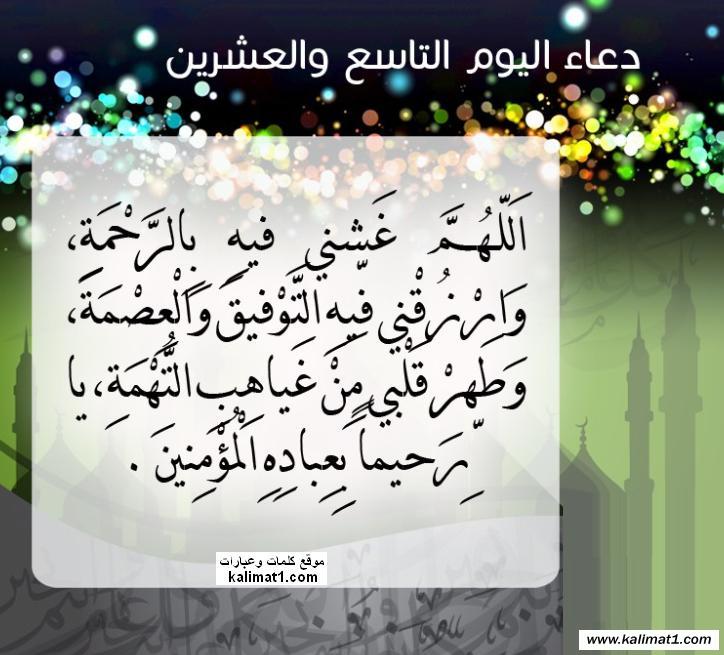 دعاء اليوم التاسع والعشرين
اَللّهُمَّ غَشِّني فيهِ بِالرَّحْمَةِ،
وَارْزُقْني فيهِ التَّوْفيقَ وَالْعِصْمَةَ،
وَطَهِّرْ قَلْبي مِنْ غَياهِبِ التُّهْمَةِ، يا
رَحيماً بِعِبادِهِ الْمُؤْمِنينَ .
موقع كلمات وعبارات
kalimat1.com
www.kalimat1.com